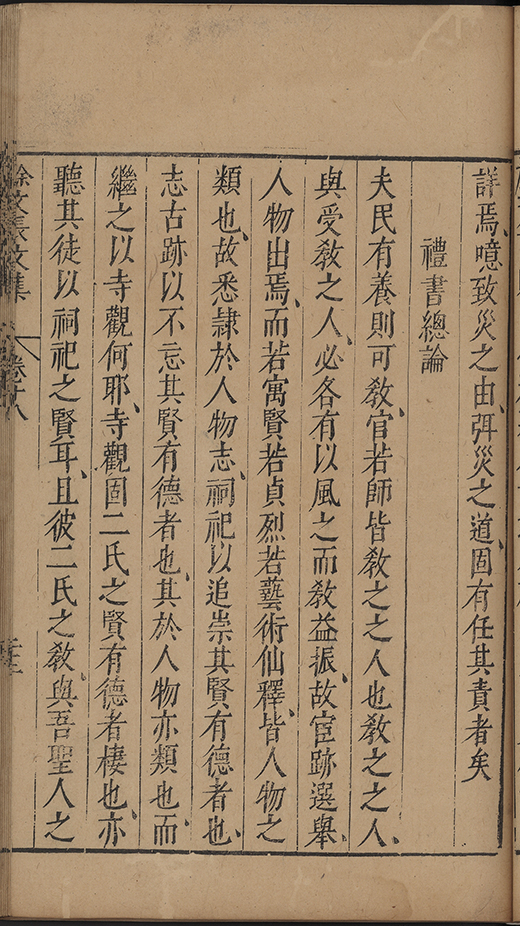 詳焉、噫致災之由、弭災之道、固有任其責者矣
禮書總論
夫民有養則可教、官若師皆教之之人也教之之人、
與受教之人、必各有以風之而教益振、故宦跡選舉、
人物出焉、而若寓賢若貞烈若藝術仙釋、皆人物之
類也、故悉隷於人物志、祠祀以追崇其賢有德者也、
志古跡以不忘其賢有德者也、其於人物亦類也、而
繼之以寺觀何耶、寺觀固二氏之賢有德者棲也、亦
聽其徒以祠祀之賢耳、且彼二氏之教、與吾聖人之
徐文長文集
卷十八